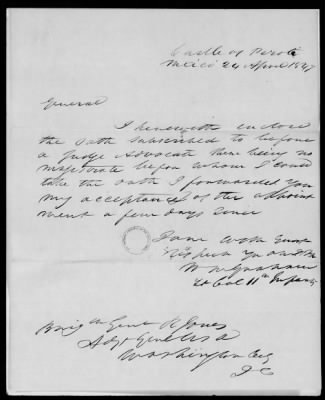 Castle of Perote
Mexico 24 April 1847
General
I herewith enclose
the oath subscribed to before
a Judge Advocate there being no
magistrate before whom I could
take the oath I forwarded you
my acceptance of the appoint
ment a few days since
I am with great
Respect Yr
W M Graham
Lt Col 11th Infantry
Brig Genl R Jones
Adjt Genl U S A
Washington City
D C